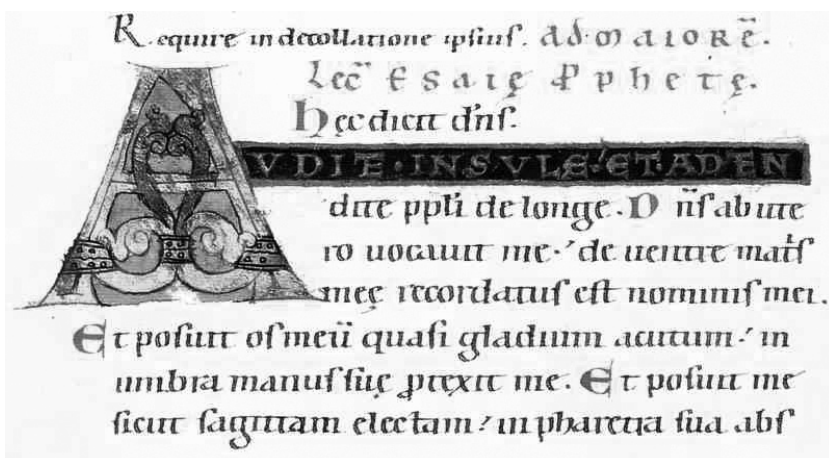 Require in decollatione ipsius. AD MAIORĒ.
Lec̄ ESAIĘ PPHETĘ.
Hęc dicit dn̄s.
AUDITE·INSULE·ET ADTEN
dite ppl̄i de longe. D n̄s ab ute
ro uocauit me·' de uentre mat̄s
meę recordatus est nominis mei.
Et posuit os meū quasi gladium acutum·' in
umbra manus suę ꝓtexit me. Et posuit me
sicut sagittam electam·' in pharetra sua abs